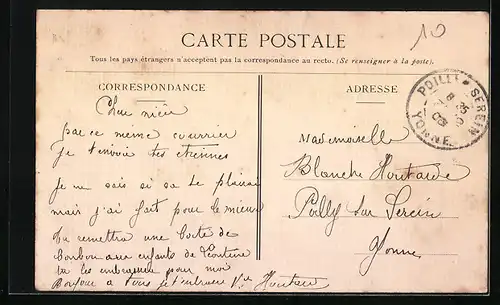 10
CARTE POSTALE
Tous les pays étrangers n'acceptent pas la correspondance au recto. (Se renseigner à la poste).
CORRESPONDANCE
ADRESSE
POILLY-S-SEREIN
YONNE
par ce meme courrier
je t'envoie tes etrennes
je ne sais si sa te plaira
mais j'ai fait pour le mieux
tu remettra une boite de
bonbon aux enfants de
tu les embrassera pour moi
Bonjour a tous je t'embrasse Vve Houtard
Mademoiselle
Blanche Houtarde
Poilly sur Serein
Yonne